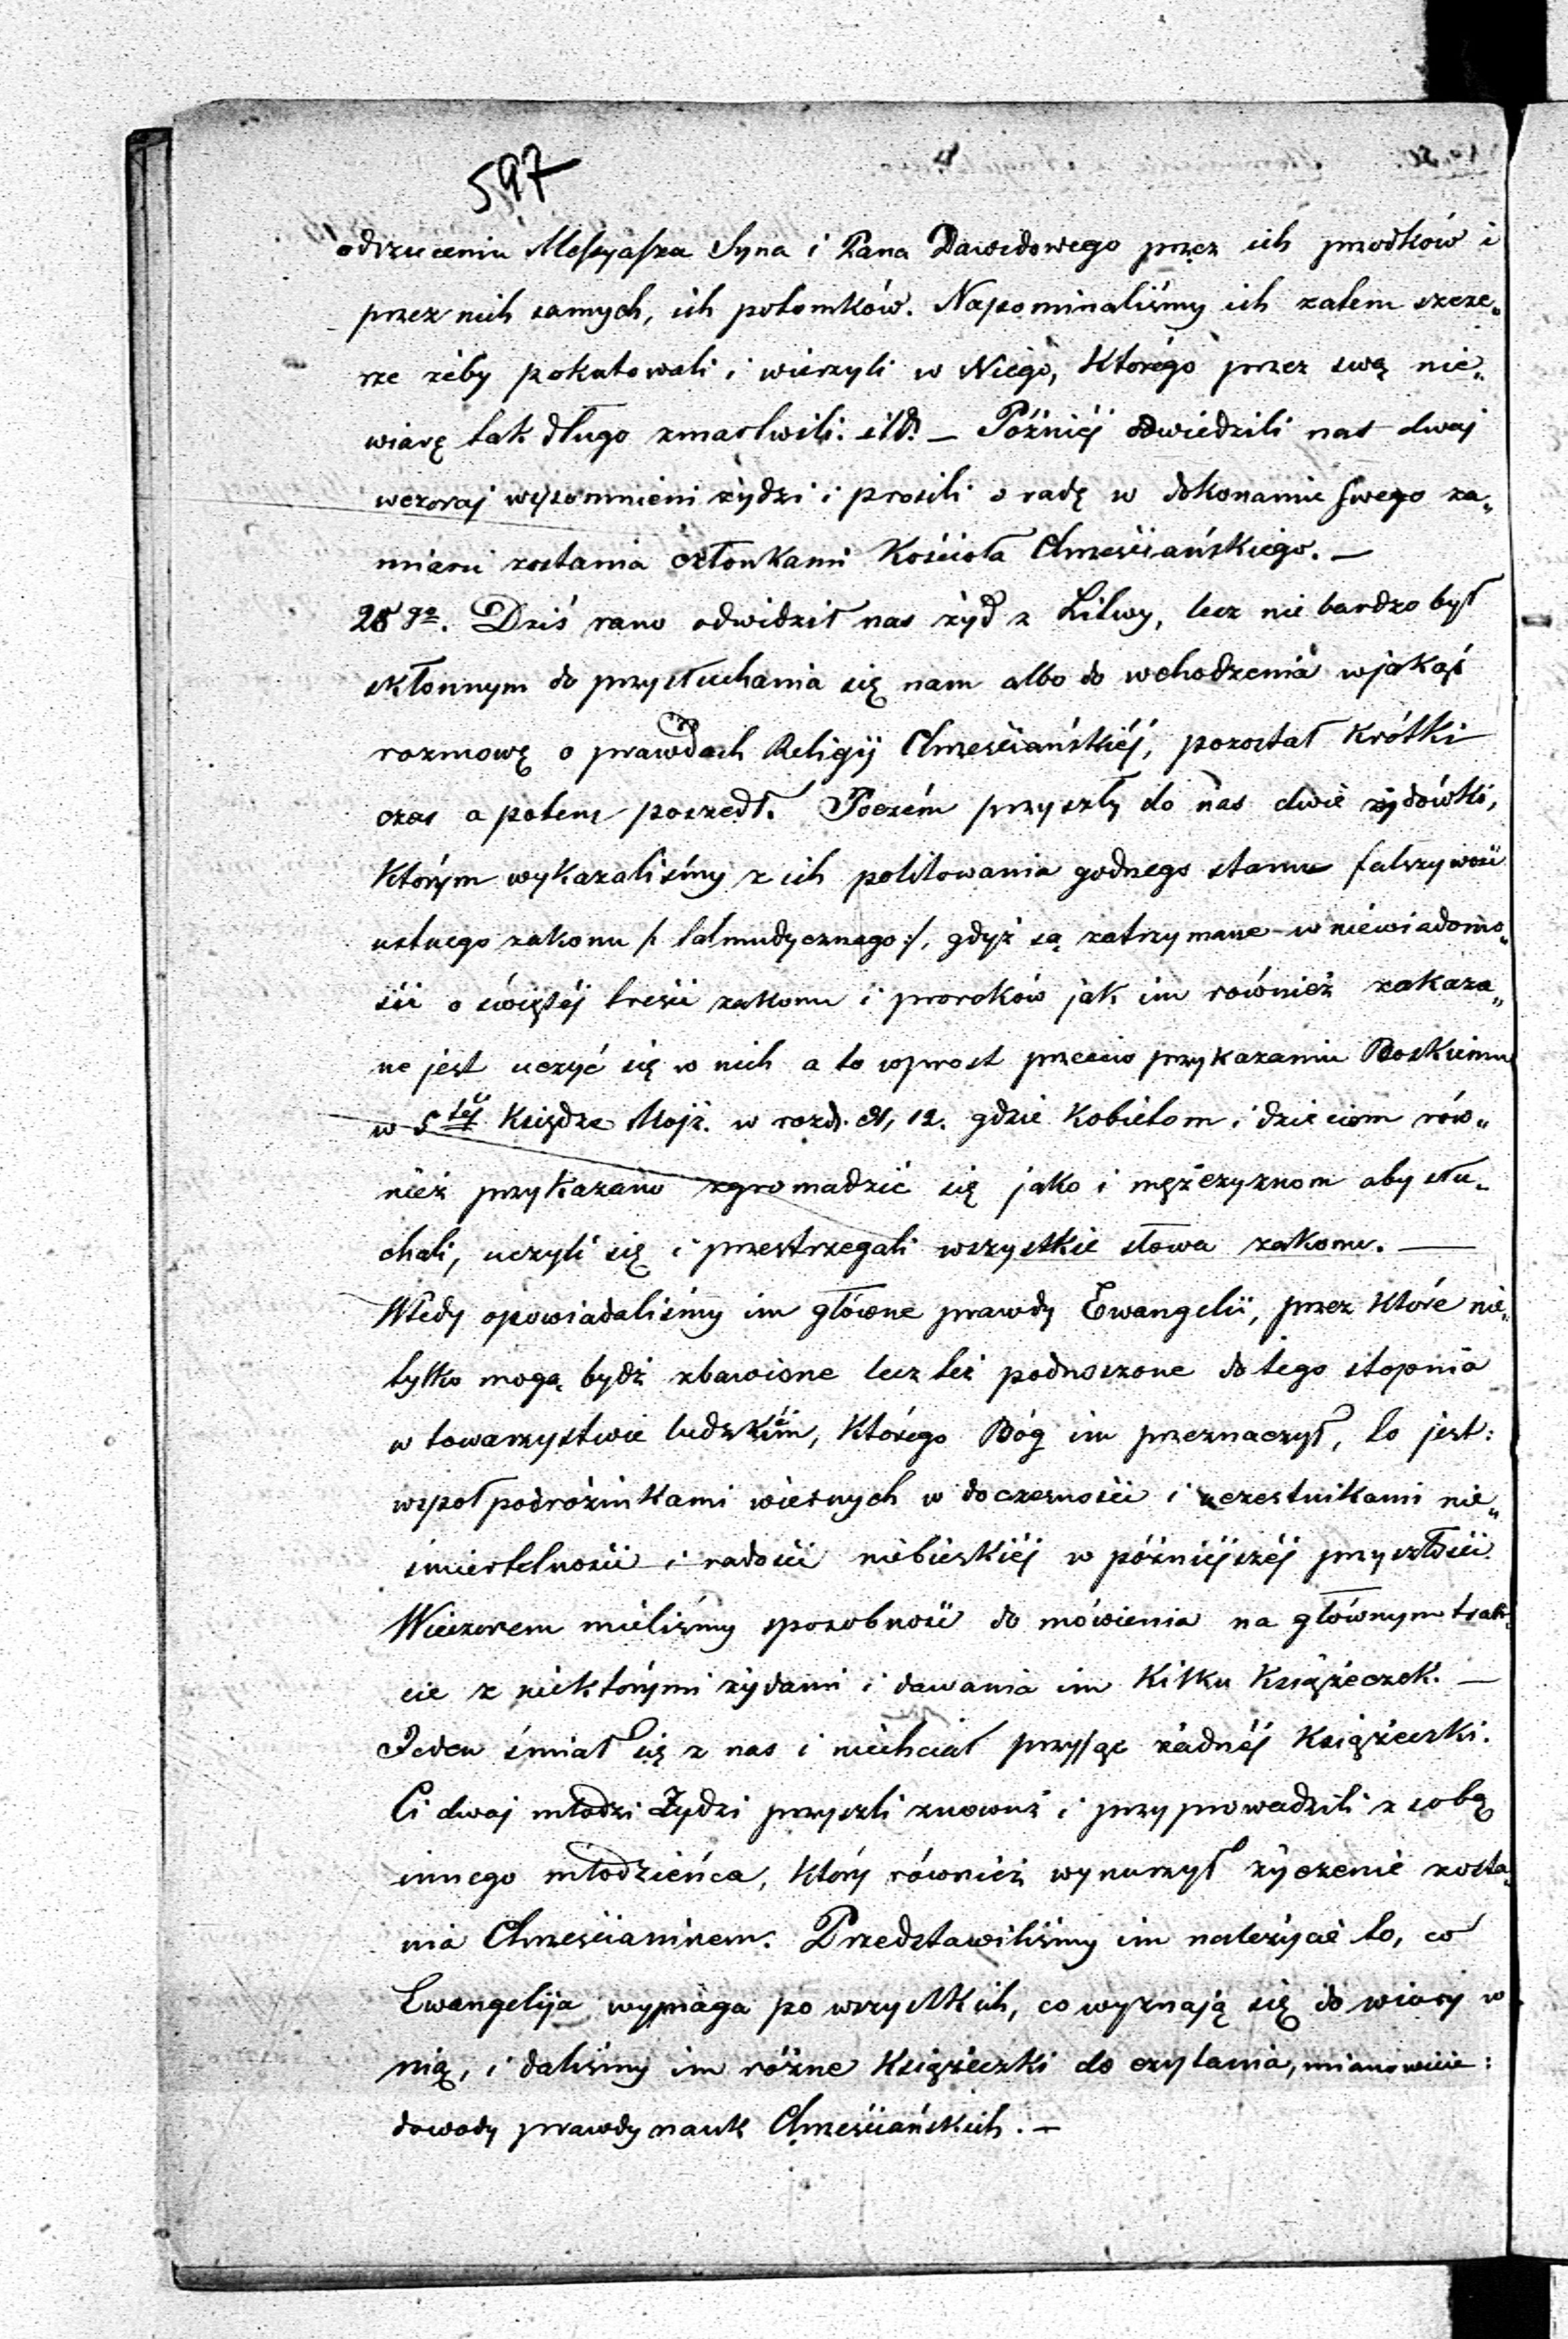 597
odrzuceniu Messyasza Syna i Pana Dawidowego przez ich przodków i
przez nich samych, ich potomków. Napominaliśmy ich zatem szcze„
rze żeby pokutowali i wierzyli w Niego, Którego przez swą nie„
wiarę tak długo zmartwili. itd. — Później odwiedzili nas dwaj
wczoraj wspomnieni żydzi i prosili o radę w dokonaniu swego za„
miaru zostania członkami Kościoła Chrześciańskiego. —
28go. Dziś rano odwidził nas żyd z Litwy, lecz nie bardzo był
skłonnym do przysłuchania się nam albo do wchodzenia w jakąś
rozmowę o prawdach Religij Chrześciańskiéj, pozostał krótki
czas a potem poszedł. Poczém przyszły do nas dwie żydówki,
Którym wykazaliśmy z ich politowania godnego stanu falszywość
ustnego zakonu /: talmudycznego :/, gdyż są zatrzymane w niewiadomo„
ści o świętéj treści zakonu i proroków jak im również zakaza„
ne jest uczyć się w nich a to wprost przeciw przykazaniu Boskiemu
w 5téj Księdze Mojż. w rozd. 31, 12. gdzie Kobietom i dzieciom rów„
nież przykazano zgromadzić się jako i mężczyznom aby słu„
chali, uczyli się i przestrzegali wszystkie słowa zakonu. —
Wtedy opowiadaliśmy im główne prawdy Ewangelii, przez które nie„
tylko mogą bydź zbawione lecz też podnoszone do tego stopnia
w towarzystwie ludzkiém, Którego Bóg im przeznaczył, to jest:
współpodróżnikami wiernych w doczesności i uczestnikami nie„
śmiertelności i radości niebieskiéj w późniéjszéj przyszłości.
Wieczorem mieliśmy sposobność do mówienia na głównym trak„
cie z niektórymi żydami i dawania im Kilku Książeczek. —
Jeden śmiał się z nas i niechciał przyjąc żadnéj Książeczki.
Ci dwaj młodzi Żydzi przyszli znowuż i przyprowadzili z sobą
innego młodzieńca, Który również wynurzył życzenie zosta„
nia Chrześcianinem. Przedstawiliśmy im należycie to, co
Ewangelija wymaga po wszystkich, co wyznają się do wiary w
nią, i daliśmy im różne Książeczki do czytania, mianowicie:
dowody prawdy nauk Chrześciańskich. —